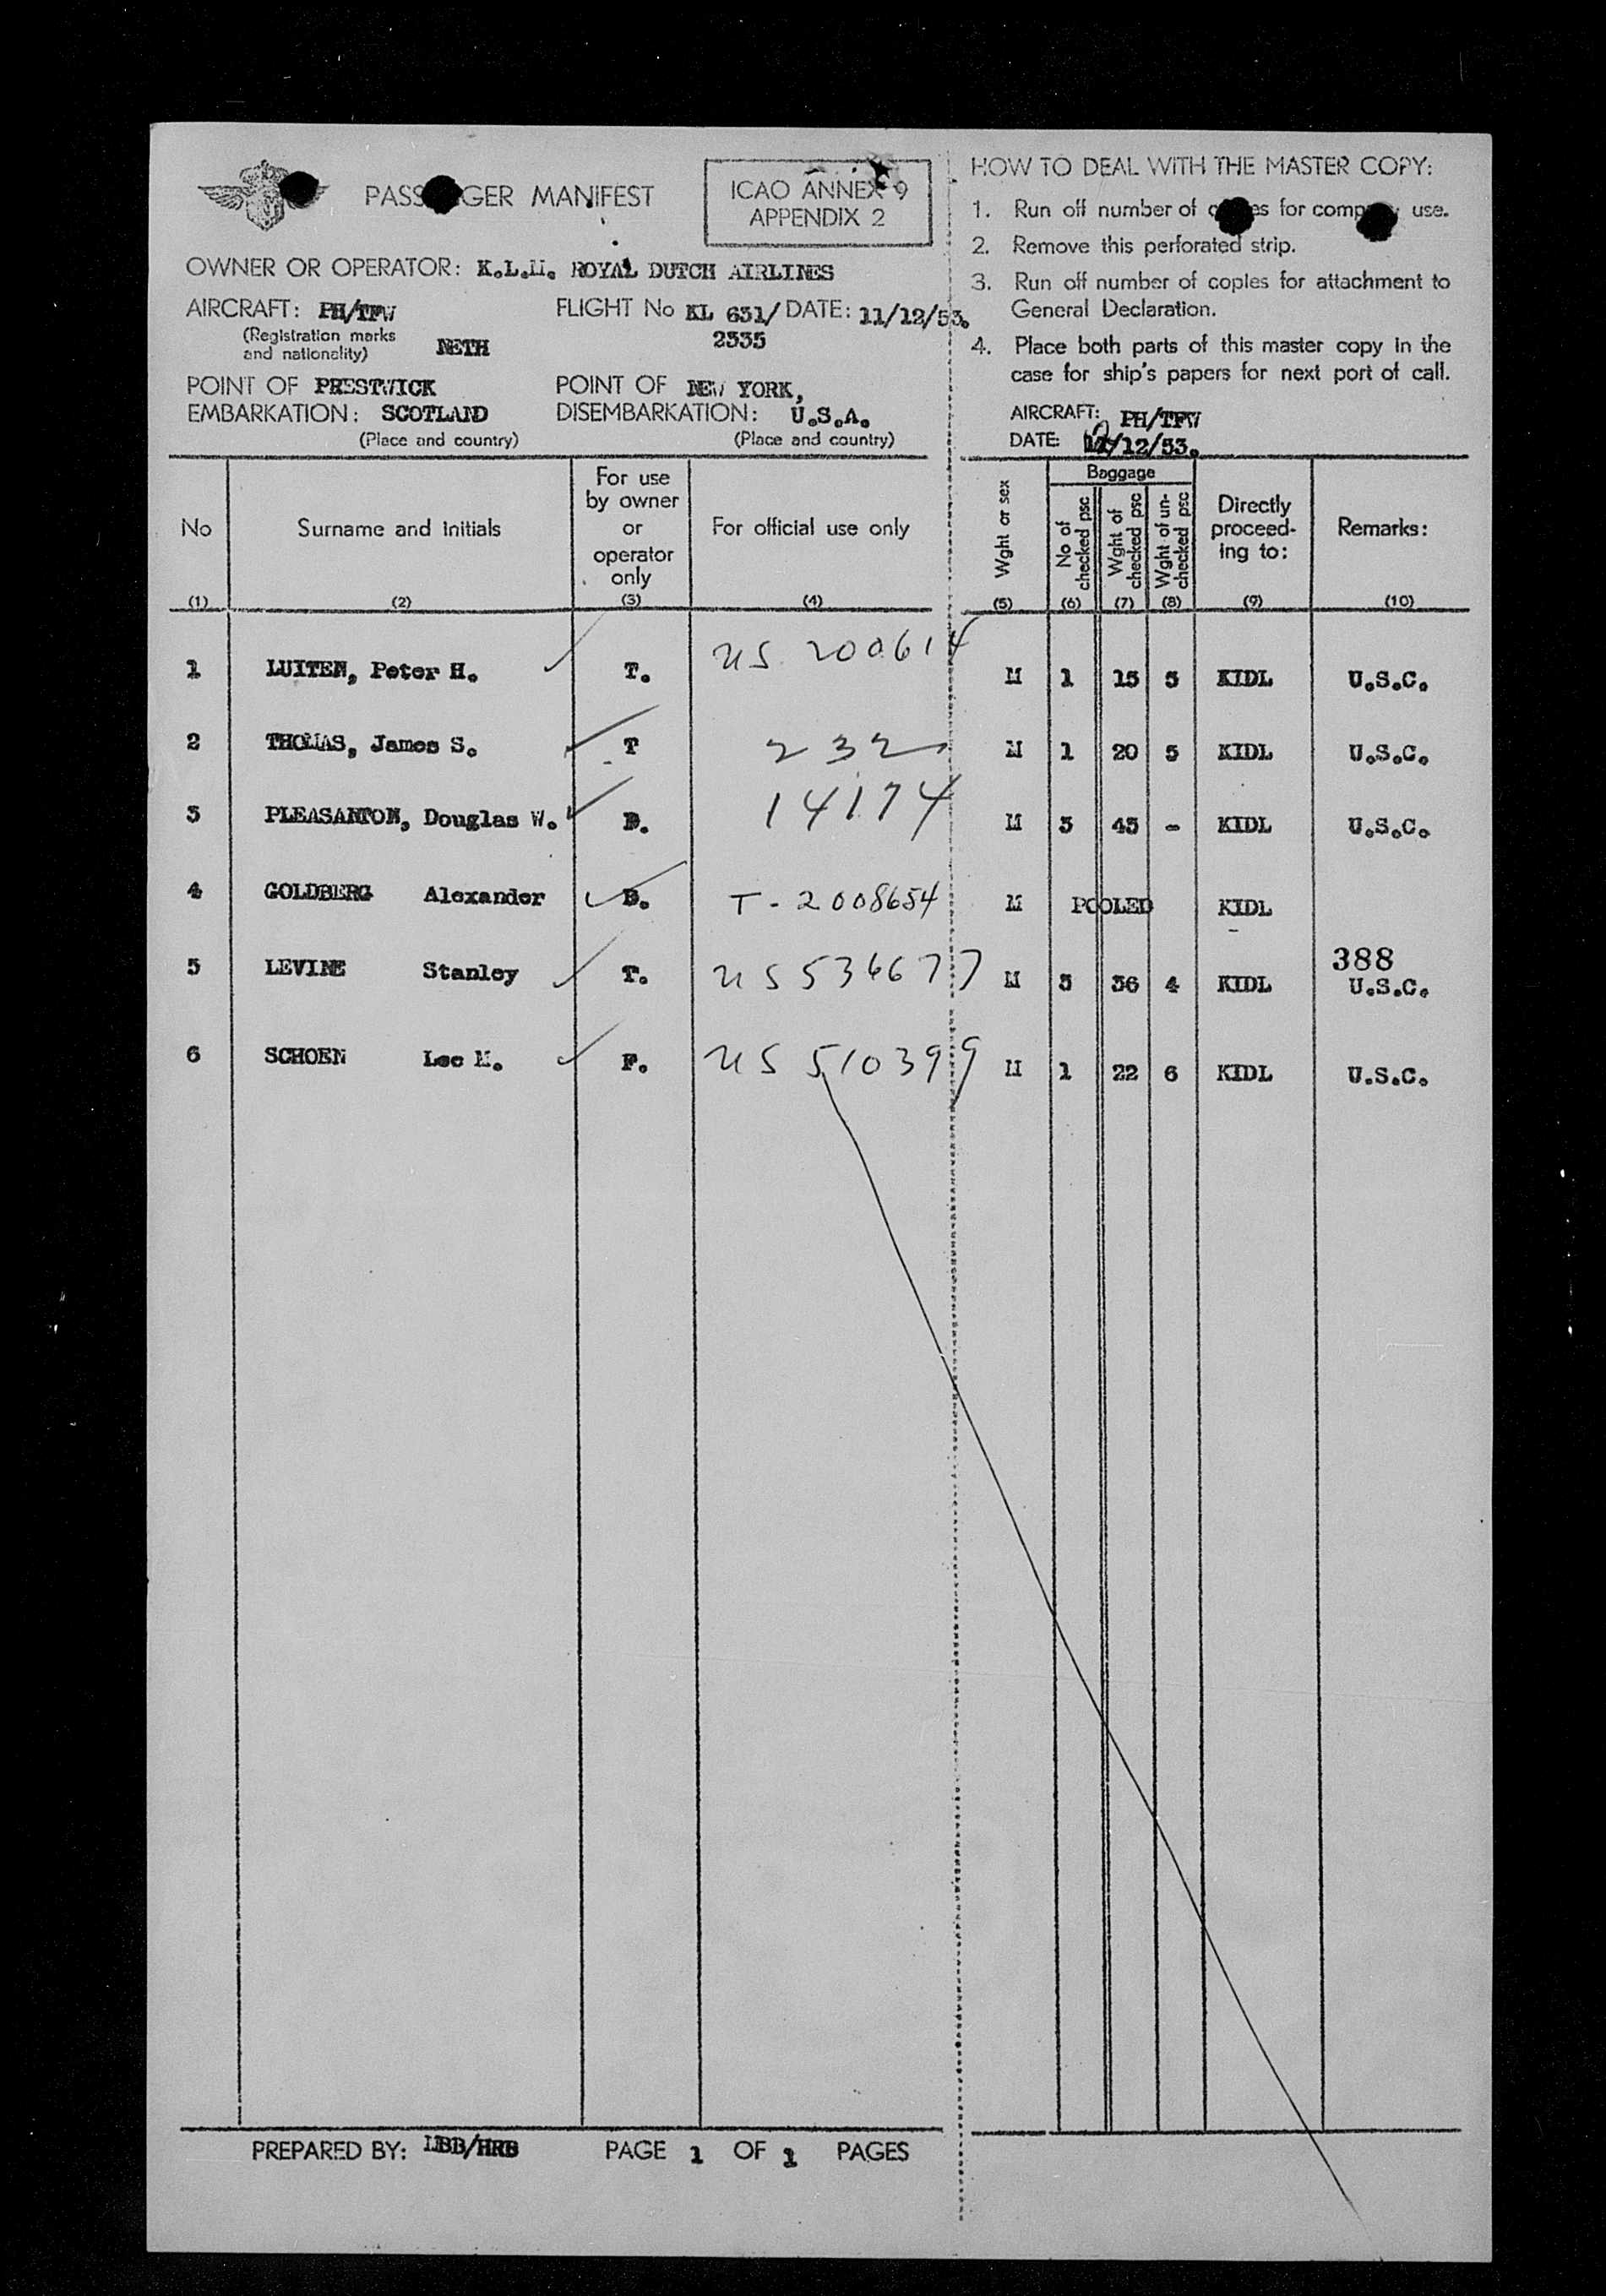 PASS GER MANIFEST
ICAO ANNEX 9
APPENDIX 2
OWNER OR OPERATOR: K.L.M. ROYAL DUTCH AIRLINES
AIRCRAFT: PH/TFW
FLIGHT No KL 631/ DATE: 11/12/53.
(Registration marks
and nationality) NETH
2335
POINT OF PRESTWICK
EMBARKATION: SCOTLAND
(Place and country)
POINT OF NEW YORK,
DISEMBARKATION: U.S.A.
(Place and country)
HOW TO DEAL WITH THE MASTER COPY:
1. Run off number of c es for comp y use.
2. Remove this perforated strip.
3. Run off number of copies for attachment to
General Declaration.
4. Place both parts of this master copy in the
case for ship's papers for next port of call.
AIRCRAFT: PH/TFW
DATE: 12/12/53.
No
(1)
Surname and initials
(2)
For use
by owner
or
operator
only
(3)
For official use only
(4)
Wght or sex
(5)
Baggage
No of
checked psc
(6)
Wght of
checked psc
(7)
Wght of un-
checked psc
(8)
Directly
proceed-
ing to:
(9)
Remarks:
(10)
1 LUITEN, Peter H. T. US 200614 M 1 15 5 KIDL U.S.C.
2 THOMAS, James S. T 232 M 1 20 5 KIDL U.S.C.
3 PLEASANTON, Douglas W. D. 14174 M 3 45 - KIDL U.S.C.
4 GOLDBERG Alexander D. T-2008654 M POOLED KIDL
388
5 LEVINE Stanley T. US 536677 M 3 36 4 KIDL U.S.C.
6 SCHOEN Lee M. F. US 510399 M 1 22 6 KIDL U.S.C.
PREPARED BY: LBB/HRB
PAGE 1 OF 1 PAGES